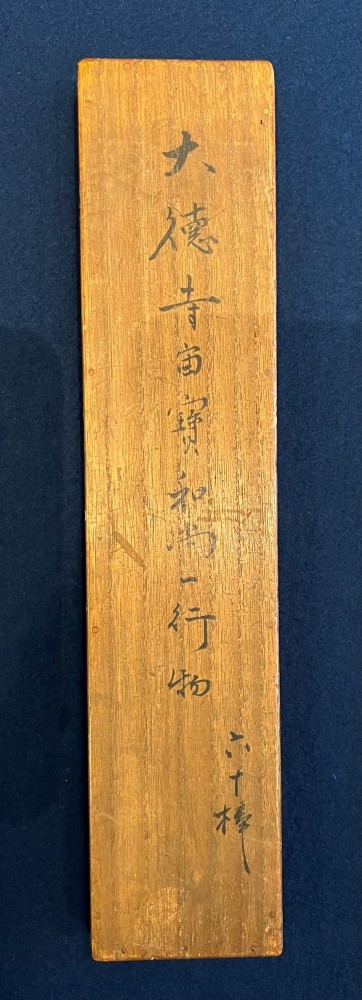 大德寺宙寶和尚一行物
六十棒